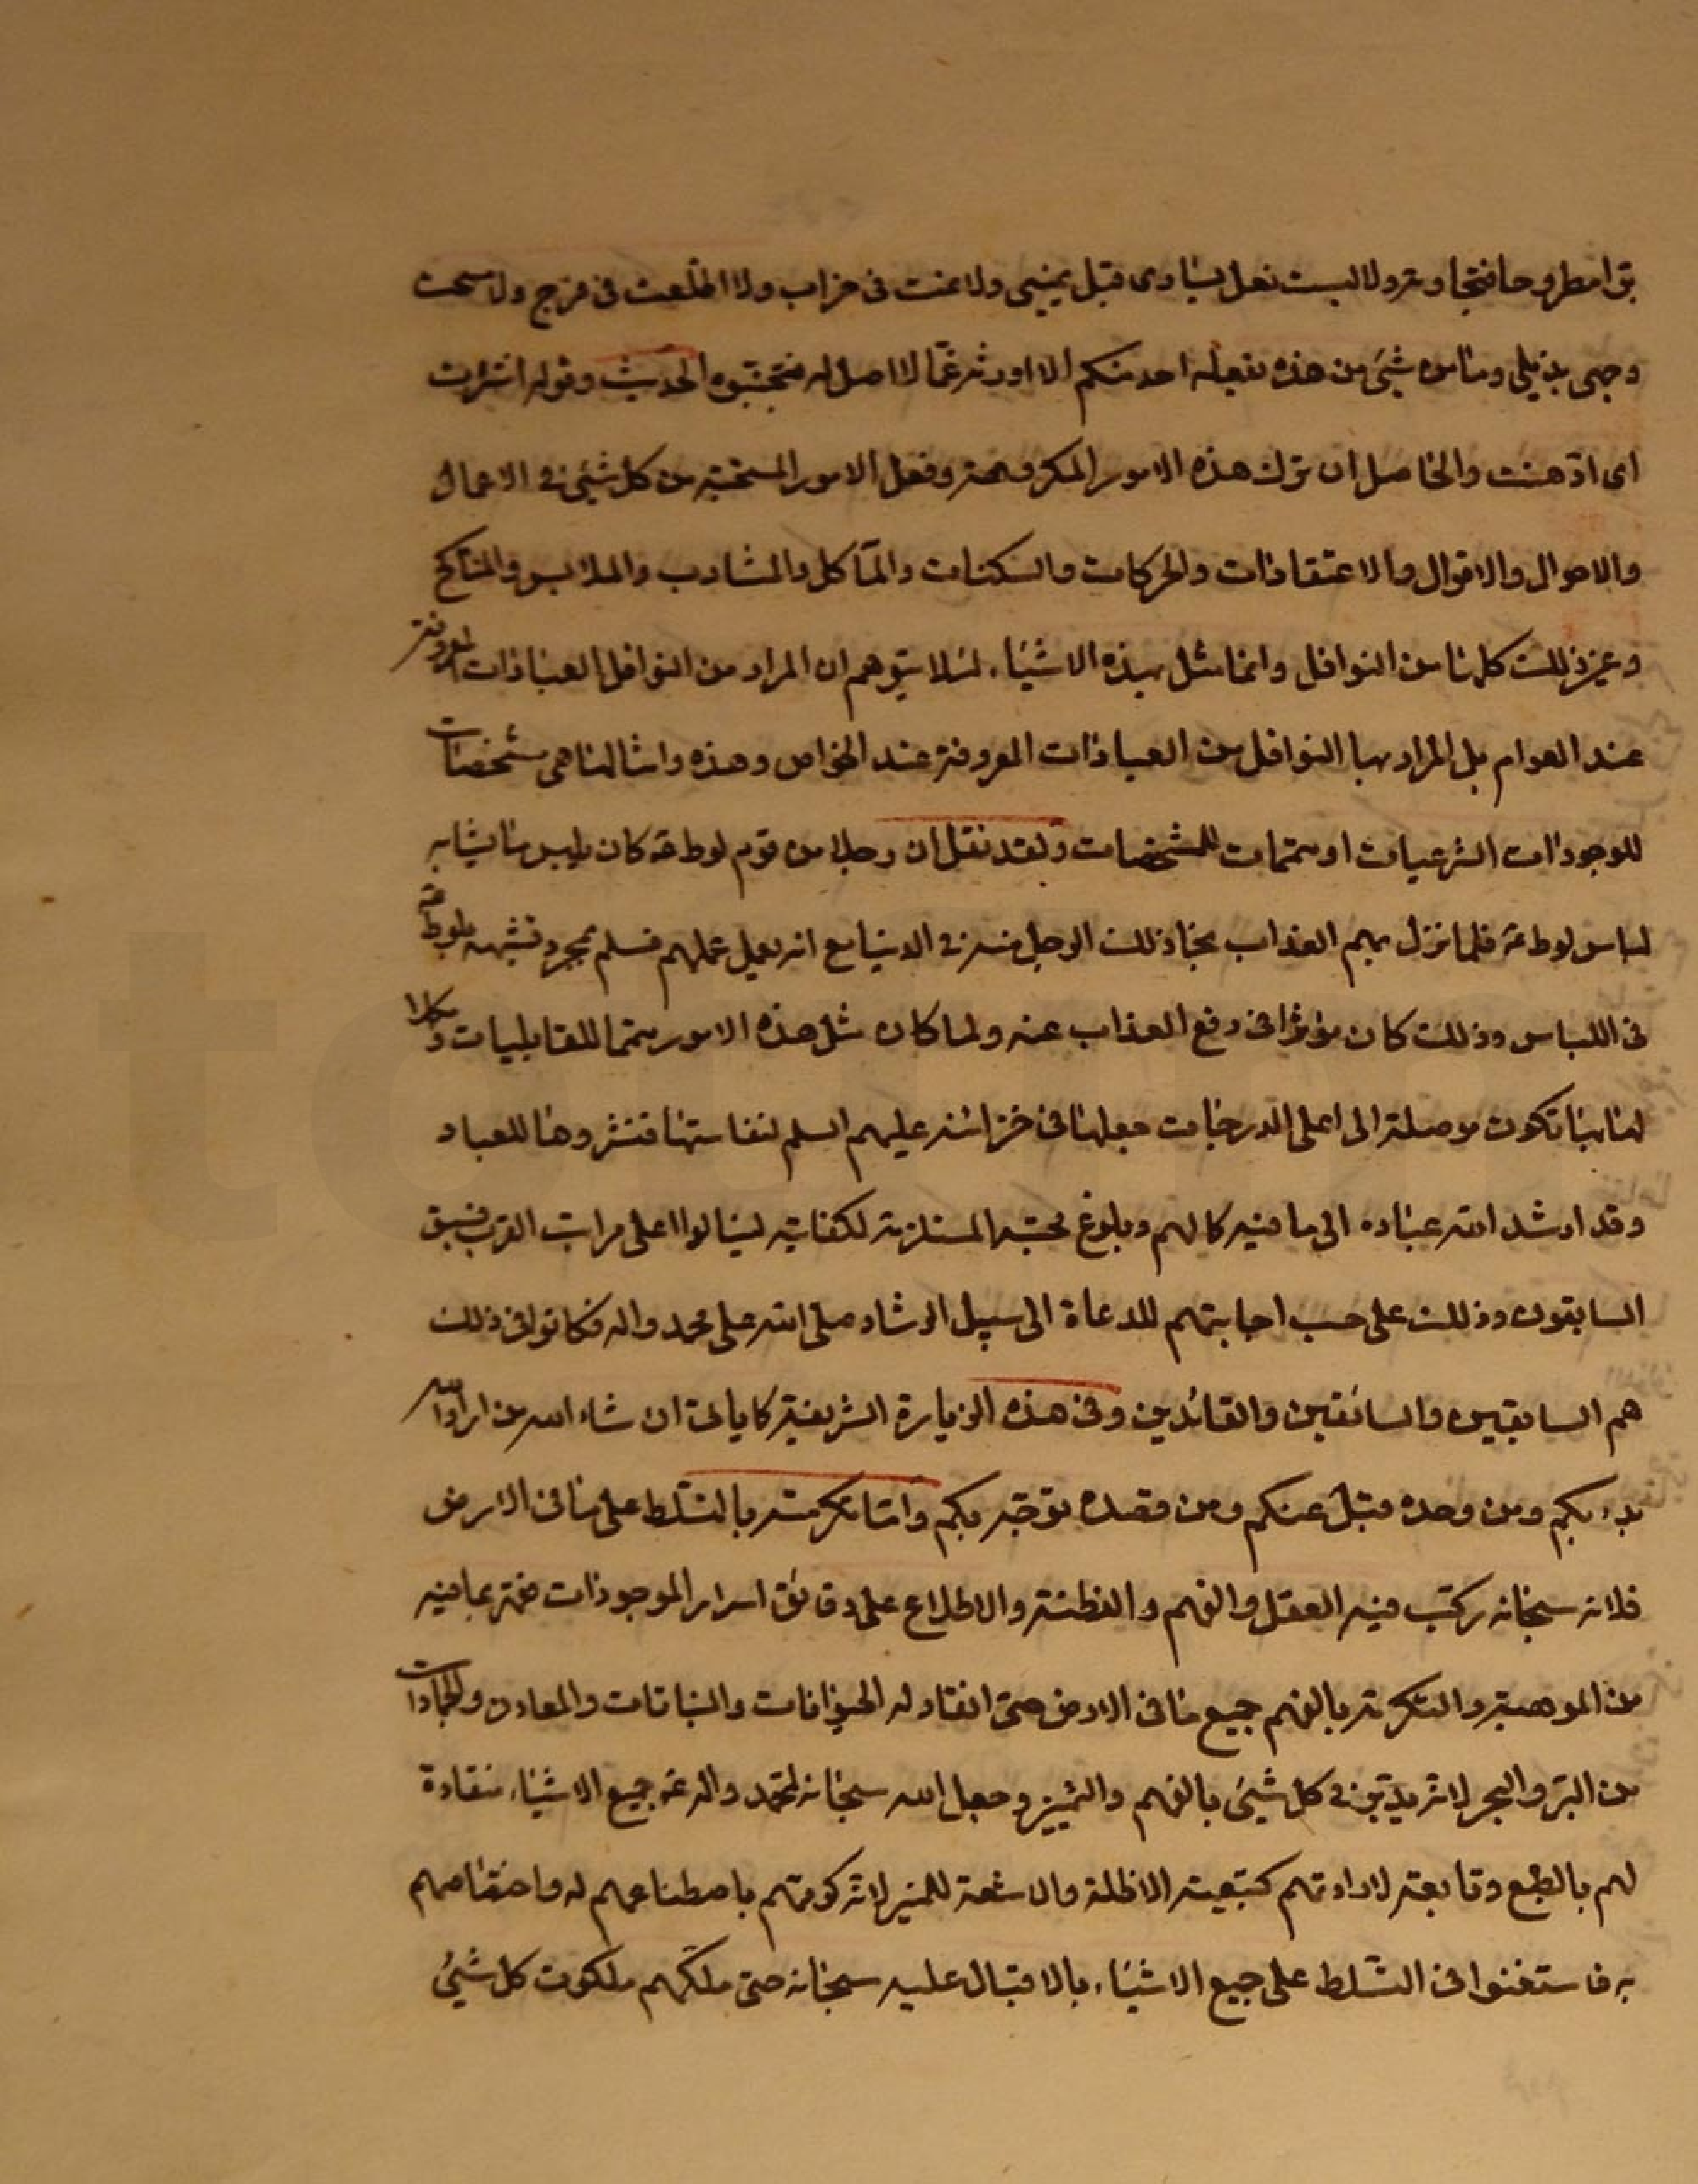 امطروحا فتجاوزته ولا لبست نعل يساري قبل يميني ولا نمت في خراب ولا اطلعت في فرج ولا مسحت
وجهي بذيلي وما من شيئ من هذه يفعله احد منكم الا اورثه غما لا اصل له فتجنبوه الحديث وقوله
اي ادهنت والحاصل ان ترك هذه الامور المكروهة وفعل الامور المستحبة من كل شيئ في الاعمال
والاحوال والاقوال والاعتقادات والحركات والسكنات والمآكل والمشارب والملابس والمناكح
وغير ذلك كلها من النوافل وانما مثل بهذه الاشياء لئلا يتوهم ان المراد من النوافل العبادات المعروفة
عند العوام بل المراد بها النوافل من العبادات المعروفة عند الخواص وهذه وامثالها هي مشخصات
للوجودات الشرعيات او متممات للمشخصات ولقد نقل ان رجلا من قوم لوط ع كان يلبس ما يشابه
لباس لوط ع فلما نزل بهم العذاب نجا ذلك الرجل منه في الدنيا مع انه يعمل عملهم فسلم بمجرد تشبهه بلوط ع
في اللباس وذلك كان مؤثرا في دفع العذاب عنه ولما كان مثل هذه الامور متمما للقابليات ومكملا
لها بها تكون موصلة الى اعلى الدرجات جعلها في خزائنه عليهم السلم لنفاستها فنشروها للعباد
وقد ارشد الله عباده الى ما فيه كمالهم وبلوغ محبته المستلزمة لكفايته لينالوا اعلى مراتب القرب فسبق
السابقون وذلك على حسب اجابتهم للدعاة الى سبيل الرشاد صلى الله على محمد واله فكانوا في ذلك
هم السابقين والسائقين والقائدين وفي هذه الزيارة الشريفة كما ياتي ان شاء الله من اراد الله
بدء بكم ومن وحده قبل عنكم ومن قصده توجه بكم واما تكرمته بالتسلط على ما في الارض
فلانه سبحانه ركب فيه العقل والفهم والفطنة والاطلاع على دقائق اسرار الموجودات بما فيه
من الموهبة والتكرمة بالفهم جميع ما في الارض حتى انقاد له الحيوانات والنباتات والمعادن والجمادات
من البر والبحر لانه في كل شيئ بالفهم والتمييز وجعل الله سبحانه لمحمد واله ع جميع الاشياء منقادة
لهم بالطبع وتابعة لارادتهم كتبعية الاظلة والاشعة للمنير لانه كرمهم باصطناعهم له واختصاصهم
به فاستغنوا في التسلط على جميع الاشياء بالاقبال عليه سبحانه حتى ملكهم ملكوت كل شيئ